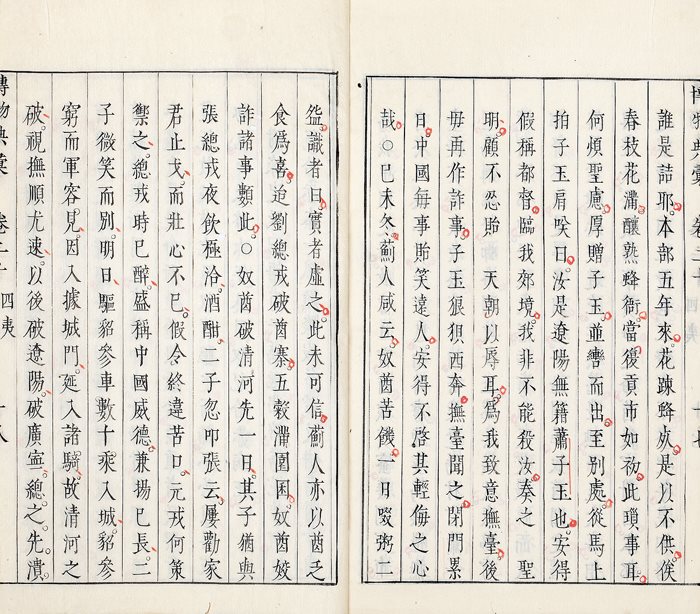 博物典彙 卷二十 四夷
誰是詰耶本部五年來花疎蜂少是以不供俟
春枝花滿釀熟蜂衙當復貢市如初此瑣事耳
何煩聖慮厚贈子玉並轡而出至別處從馬上
拍子玉肩哭曰汝是遼陽無籍蕭子玉也安得
假稱都督臨我郊境我非不能殺汝奏之 聖
明顧不忍貽 天朝以辱耳為我致意撫臺後
毋再作詐事子玉狼狽西奔撫臺聞之閉門累
日中國每事貽笑遠人安得不啓其輕侮之心
哉○巳未冬薊人咸云奴酋苦饑一日啜粥二
飡識者曰實者虛之此未可信薊人亦以酋乏
食為喜迨劉總戎破酋寨五穀滿囤囷奴酋姣
詐諸事類此○奴酋破清河先一日其子猶與
張總戎夜飲極洽酒酣二子忽叩張云屢勸家
君止戈而壯心不巳假令終違苦口元戎何策
禦之總戎時巳醉盛稱中國威德兼揚巳長二
子微笑而別明日驅貂參車數十乘入城貂參
窮而軍容見因入據城門延入諸騎故清河之
破視撫順尤速以後破遼陽破廣寧總之先潰
博物典彙 卷二十 四夷 十八